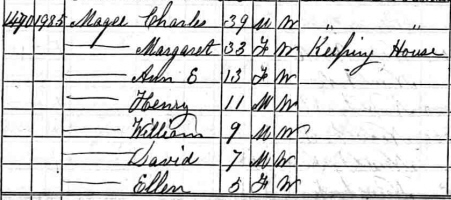 1985 Magee Charles 39 M W " "
— Margaret 33 F W Keeping House
— Ann E 13 F W
— Henry 11 M W
— William 9 M W
— David 7 M W
— Ellen 5 F W